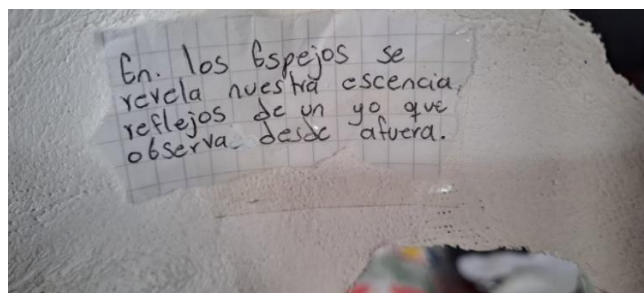 En. los Espejos se
revela nuestra escencia,
reflejos de un yo que
observa desde afuera.